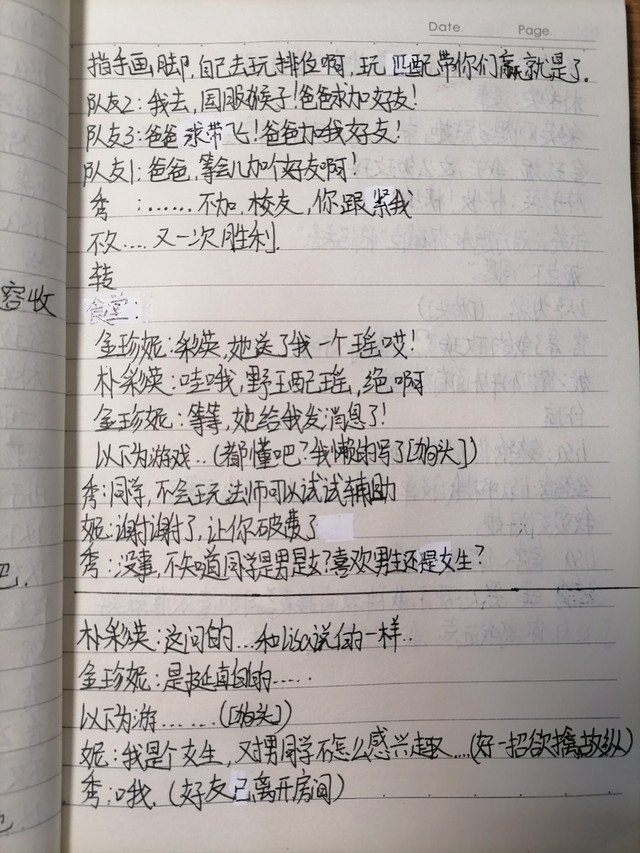 Date. Page.
指手画脚,自己去玩排位啊,玩匹配带你们赢就是了.
队友2:我去,国服猴子!爸爸求加好友!
队友3:爸爸求带飞!爸爸加我好友!
队友1:爸爸,等会儿加个好友啊!
秀:......不加,校友,你跟紧我
不久....又一次胜利.
转
容收
食堂:
金珍妮:彩英,她送了我一个瑶哎!
朴彩英:哇哦,野王配瑶,绝啊
金珍妮:等等,她给我发消息了!
以下为游戏..(都懂吧?我懒的写了[狗头])
秀:同学,不会玩法师可以试试辅助
妮:谢谢了,让你破费了
秀:没事,不知道同学是男是女?喜欢男生还是女生?
朴彩英:这问的...和Lisa说的一样..
金珍妮:是挺直的.....
以下为游......([狗头])
妮:我是个女生,对男同学不怎么感兴趣....(好一招欲擒故纵)
秀:哦.(好友已离开房间)